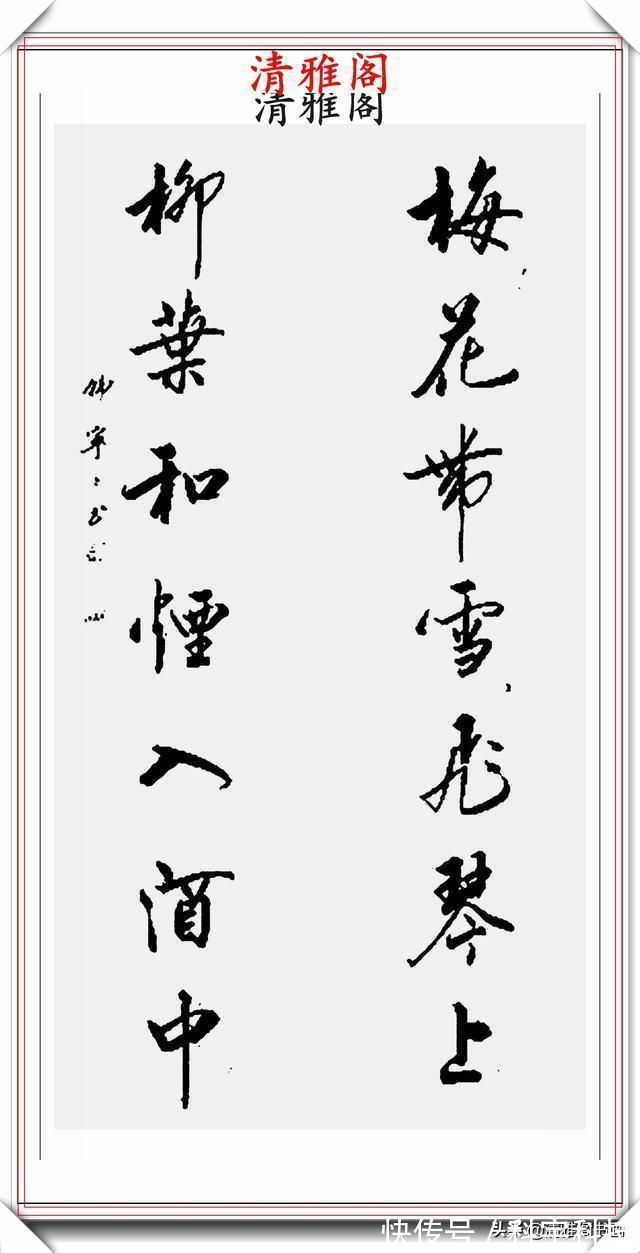 清雅阁
清雅阁
梅花带雪飛琴上
柳葉和煙入酒中
快传号